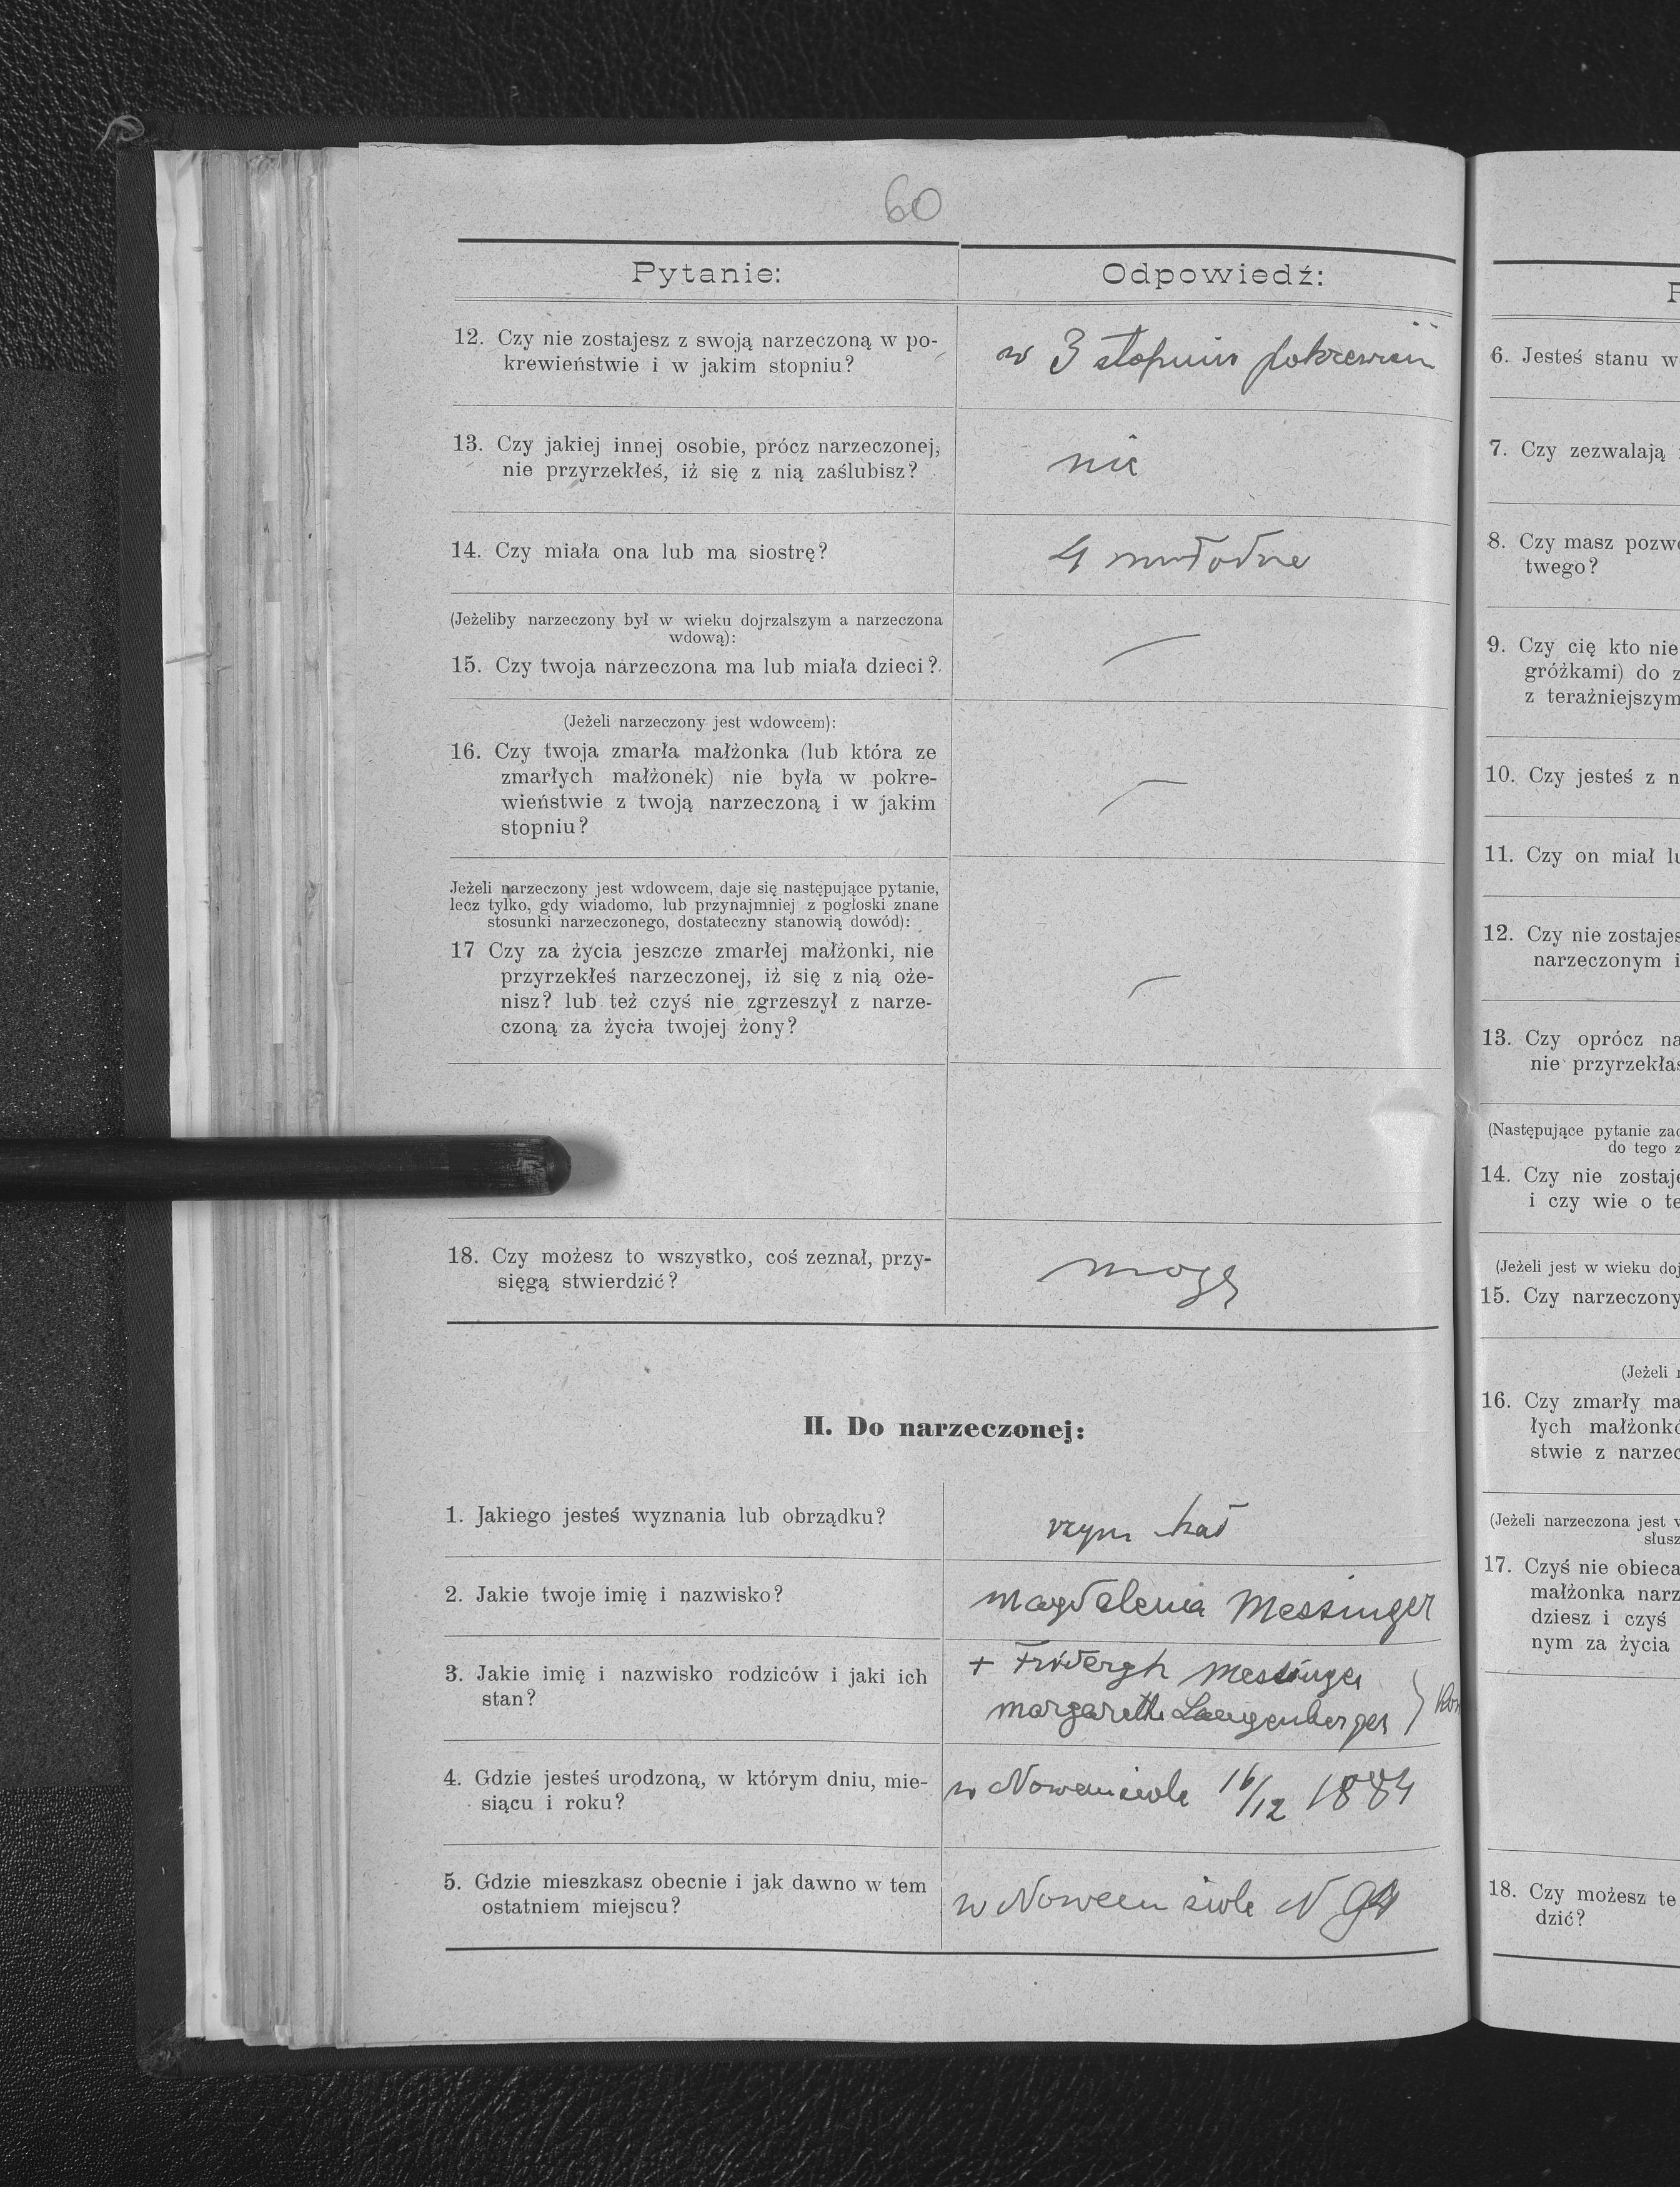 60
Pytanie:
Odpowiedź:
12. Czy nie zostajesz z swoją narzeczoną w po-
krewieństwie i w jakim stopniu?
w 3 stopniu pokrewień
13. Czy jakiej innej osobie, prócz narzeczonej,
nie przyrzekłeś, iż się z nią zaślubisz?
nie
14. Czy miała ona lub ma siostrę?
4
(Jeżeliby narzeczony był w wieku dojrzalszym a narzeczona
wdową):
15. Czy twoja narzeczona ma lub miała dzieci?
(Jeżeli narzeczony jest wdowcem):
16. Czy twoja zmarła małżonka (lub która ze
zmarłych małżonek) nie była w pokre-
wieństwie z twoją narzeczoną i w jakim
stopniu?
Jeżeli narzeczony jest wdowcem, daje się następujące pytanie,
lecz tylko, gdy wiadomo, lub przynajmniej z pogłoski znane
stosunki narzeczonego, dostateczny stanowią dowód):
17 Czy za życia jeszcze zmarłej małżonki, nie
przyrzekłeś narzeczonej, iż się z nią oże-
nisz? lub też czyś nie zgrzeszył z narze-
czoną za życia twojej żony?
18. Czy możesz to wszystko, coś zeznał, przy-
sięgą stwierdzić?
mogę
II. Do narzeczonej:
1. Jakiego jesteś wyznania lub obrządku?
rzym kat
2. Jakie twoje imię i nazwisko?
Magdalena Messinger
3. Jakie imię i nazwisko rodziców i jaki ich
stan?
+ Messinger
Margaretha Langenberger
4. Gdzie jesteś urodzoną, w którym dniu, mie-
siącu i roku?
w Nowemsiole 16/12 1884
5. Gdzie mieszkasz obecnie i jak dawno w tem
ostatniem miejscu?
w Nowem siole N
6. Jesteś stanu w
7. Czy zezwalają
8. Czy masz pozwo
twego?
9. Czy cię kto nie
gróżkami) do z
z teraźniejszym
10. Czy jesteś z n
11. Czy on miał lu
12. Czy nie zostajes
narzeczonym i
13. Czy oprócz na
nie przyrzekłaś
(Następujące pytanie zad
do tego z
14. Czy nie zostaje
i czy wie o te
(Jeżeli jest w wieku doj
15. Czy narzeczony
(Jeżeli
16. Czy zmarły ma
łych małżonkó
stwie z narzec
(Jeżeli narzeczona jest w
słusz
17. Czyś nie obieca
małżonka narz
dziesz i czyś
nym za życia
18. Czy możesz te
dzić?